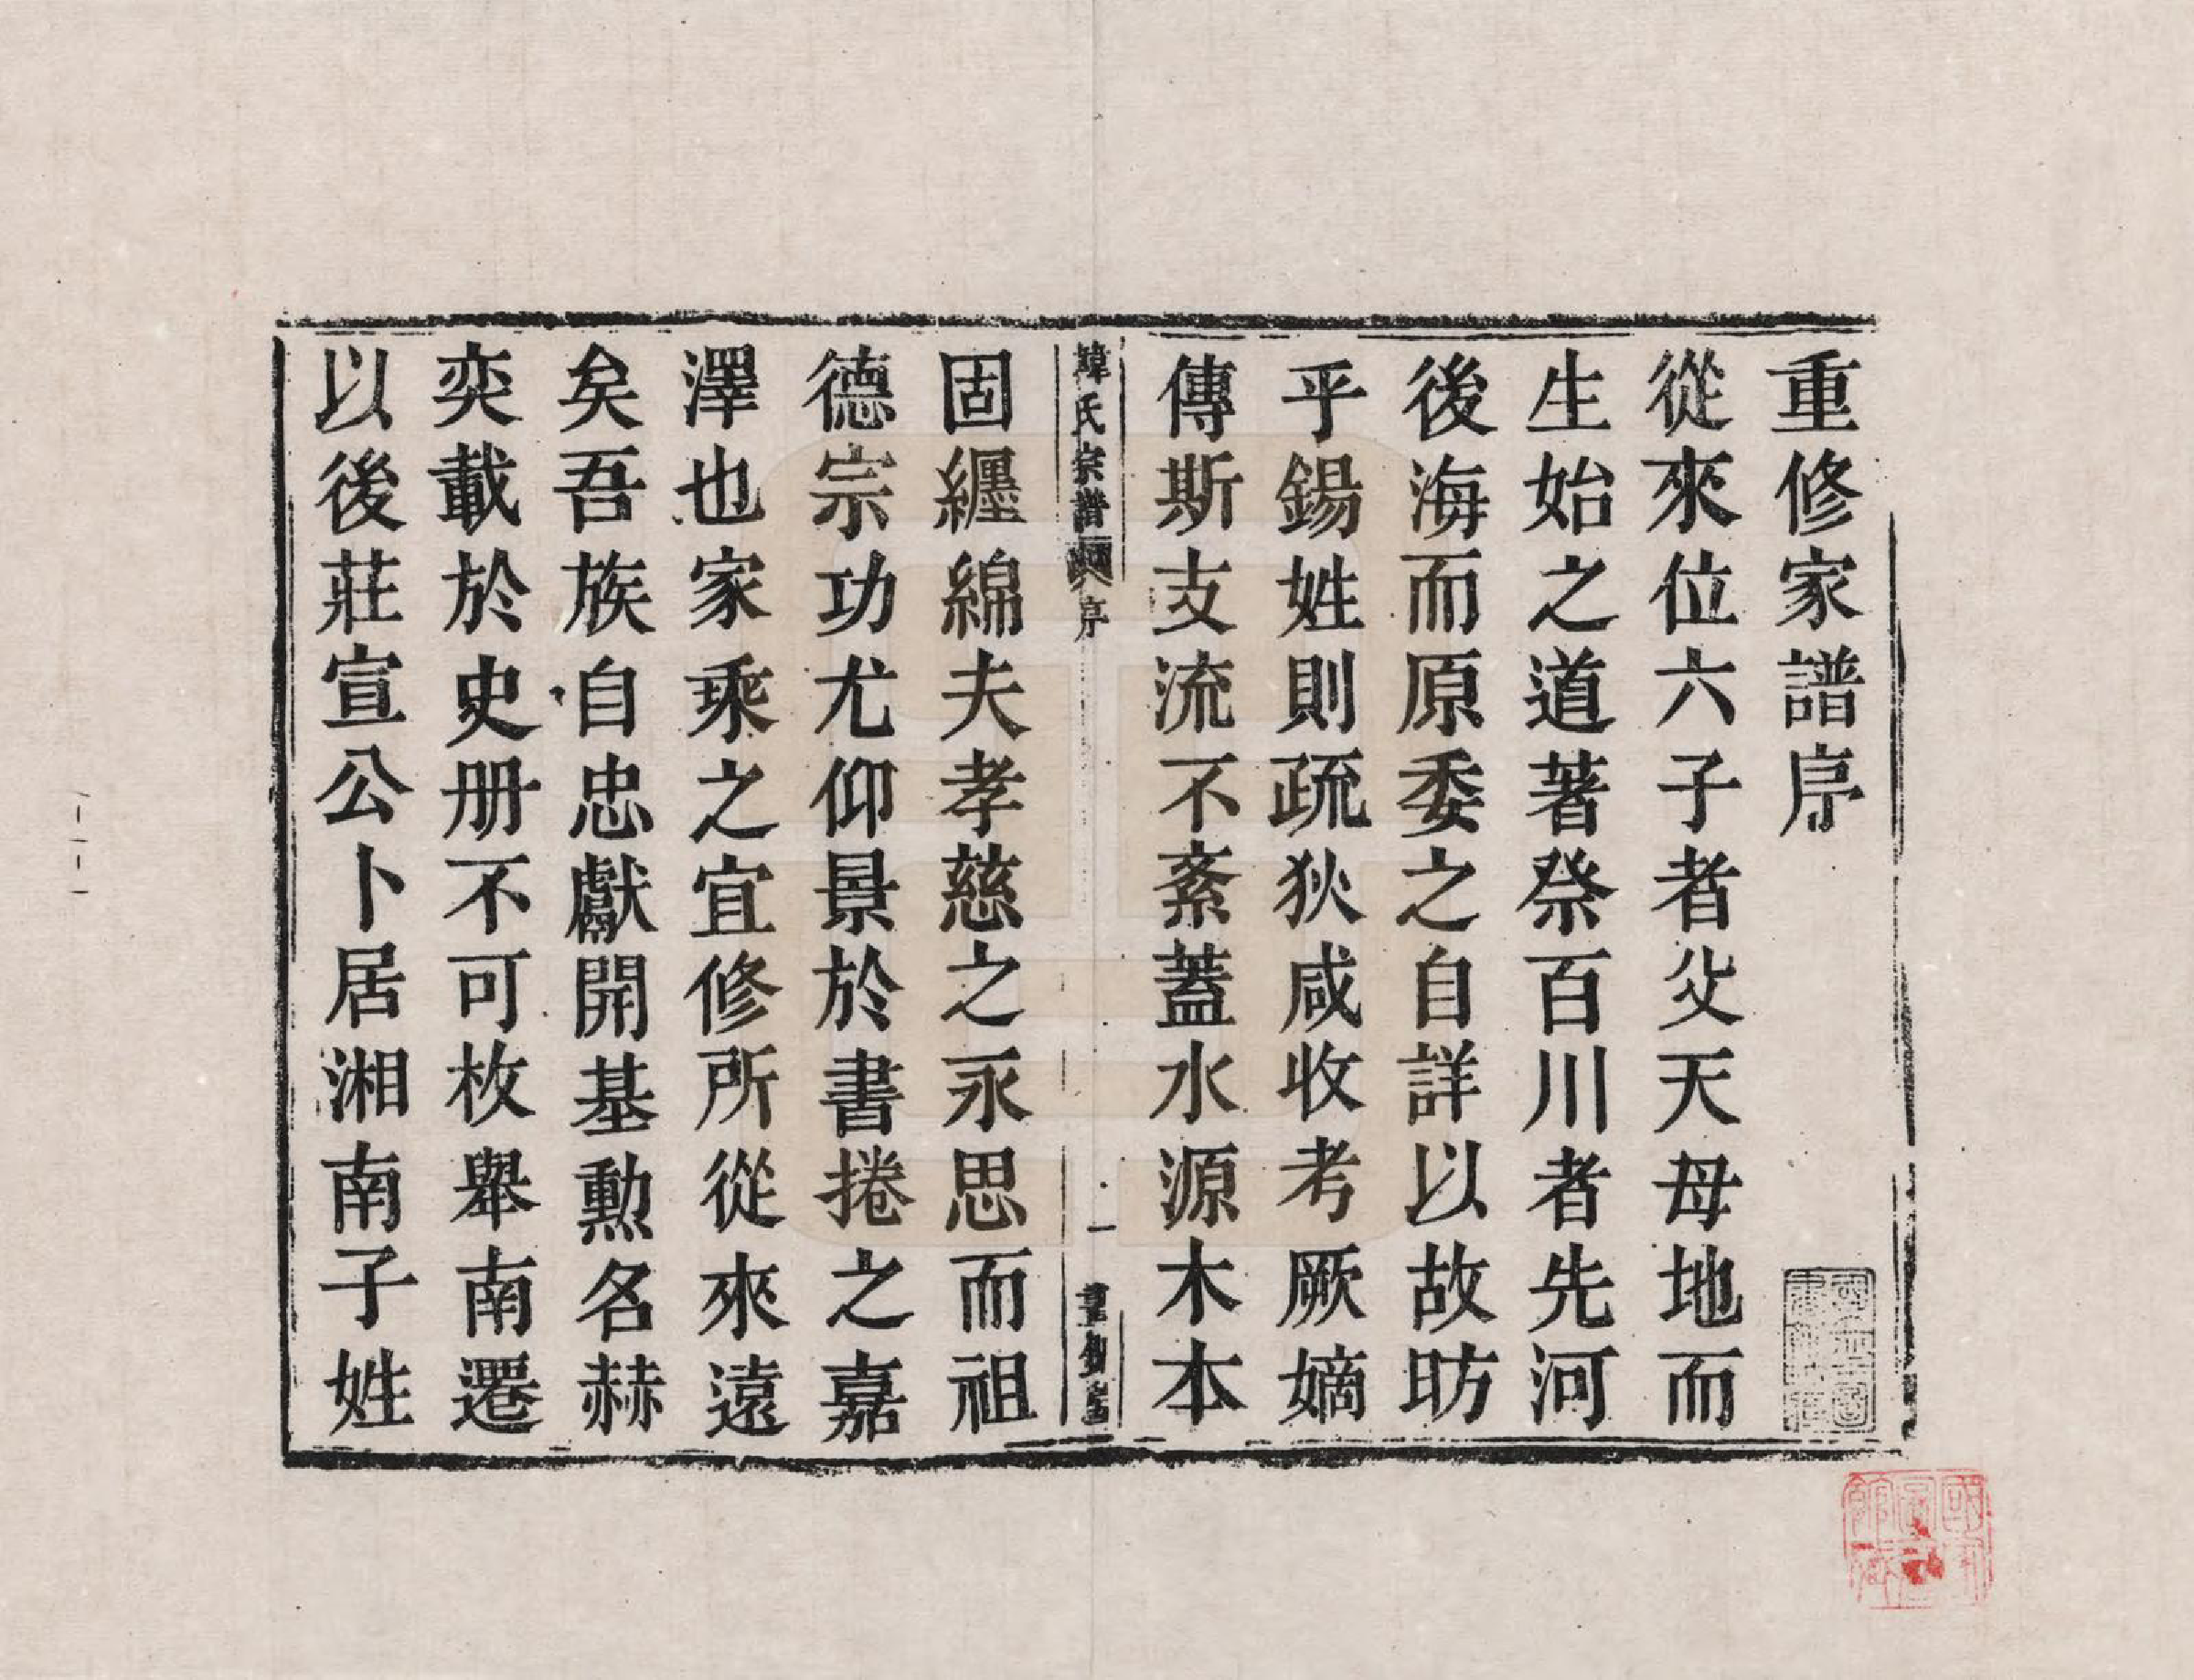 重修家譜序
從來位六子者父天母地而
生始之道著祭百川者先河
後海而原委之自詳以故昉
乎錫姓則疏狄咸收考厥嫡
傳斯支流不紊蓋水源木本
韓氏宗譜
序
一
晝錦堂
固纏綿夫孝慈之永思而祖
德宗功尤仰景於書捲之嘉
澤也家乘之宜修所從來遠
矣吾族自忠獻開基勳名赫
奕載於史册不可枚舉南遷
以後莊宣公卜居湘南子姓